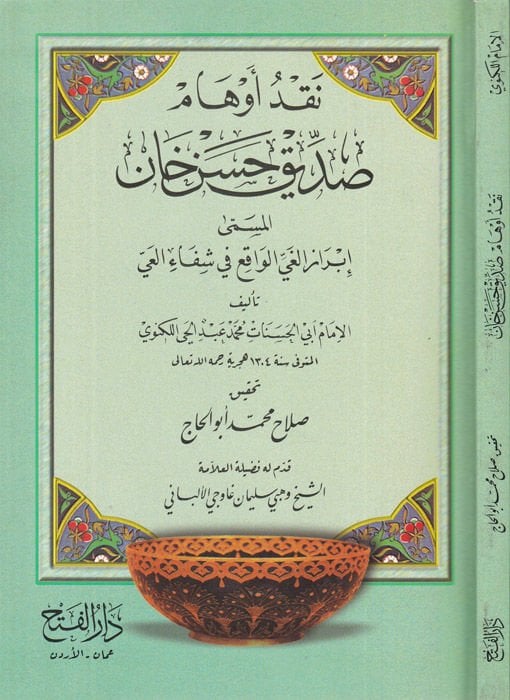 نقد أوهام
صديق حسن خان
المسمى
إبراز الغي الواقع في شفاء العي
تأليف
الإمام أبي الحسنات محمد عبد الحي اللكنوي
المتوفى سنة ١٣٠٤ هجرية رحمه الله تعالى
تحقيق
صلاح محمد أبو الحاج
قدم له فضيلة العلامة
الشيخ وهبي سليمان غاوجي الألباني
دار الفتح
عمان - الأردن
الإمام اللكنوي
نقد أوهام صديق حسن خان
تحقيق صلاح محمد أبو الحاج
دار الفتح